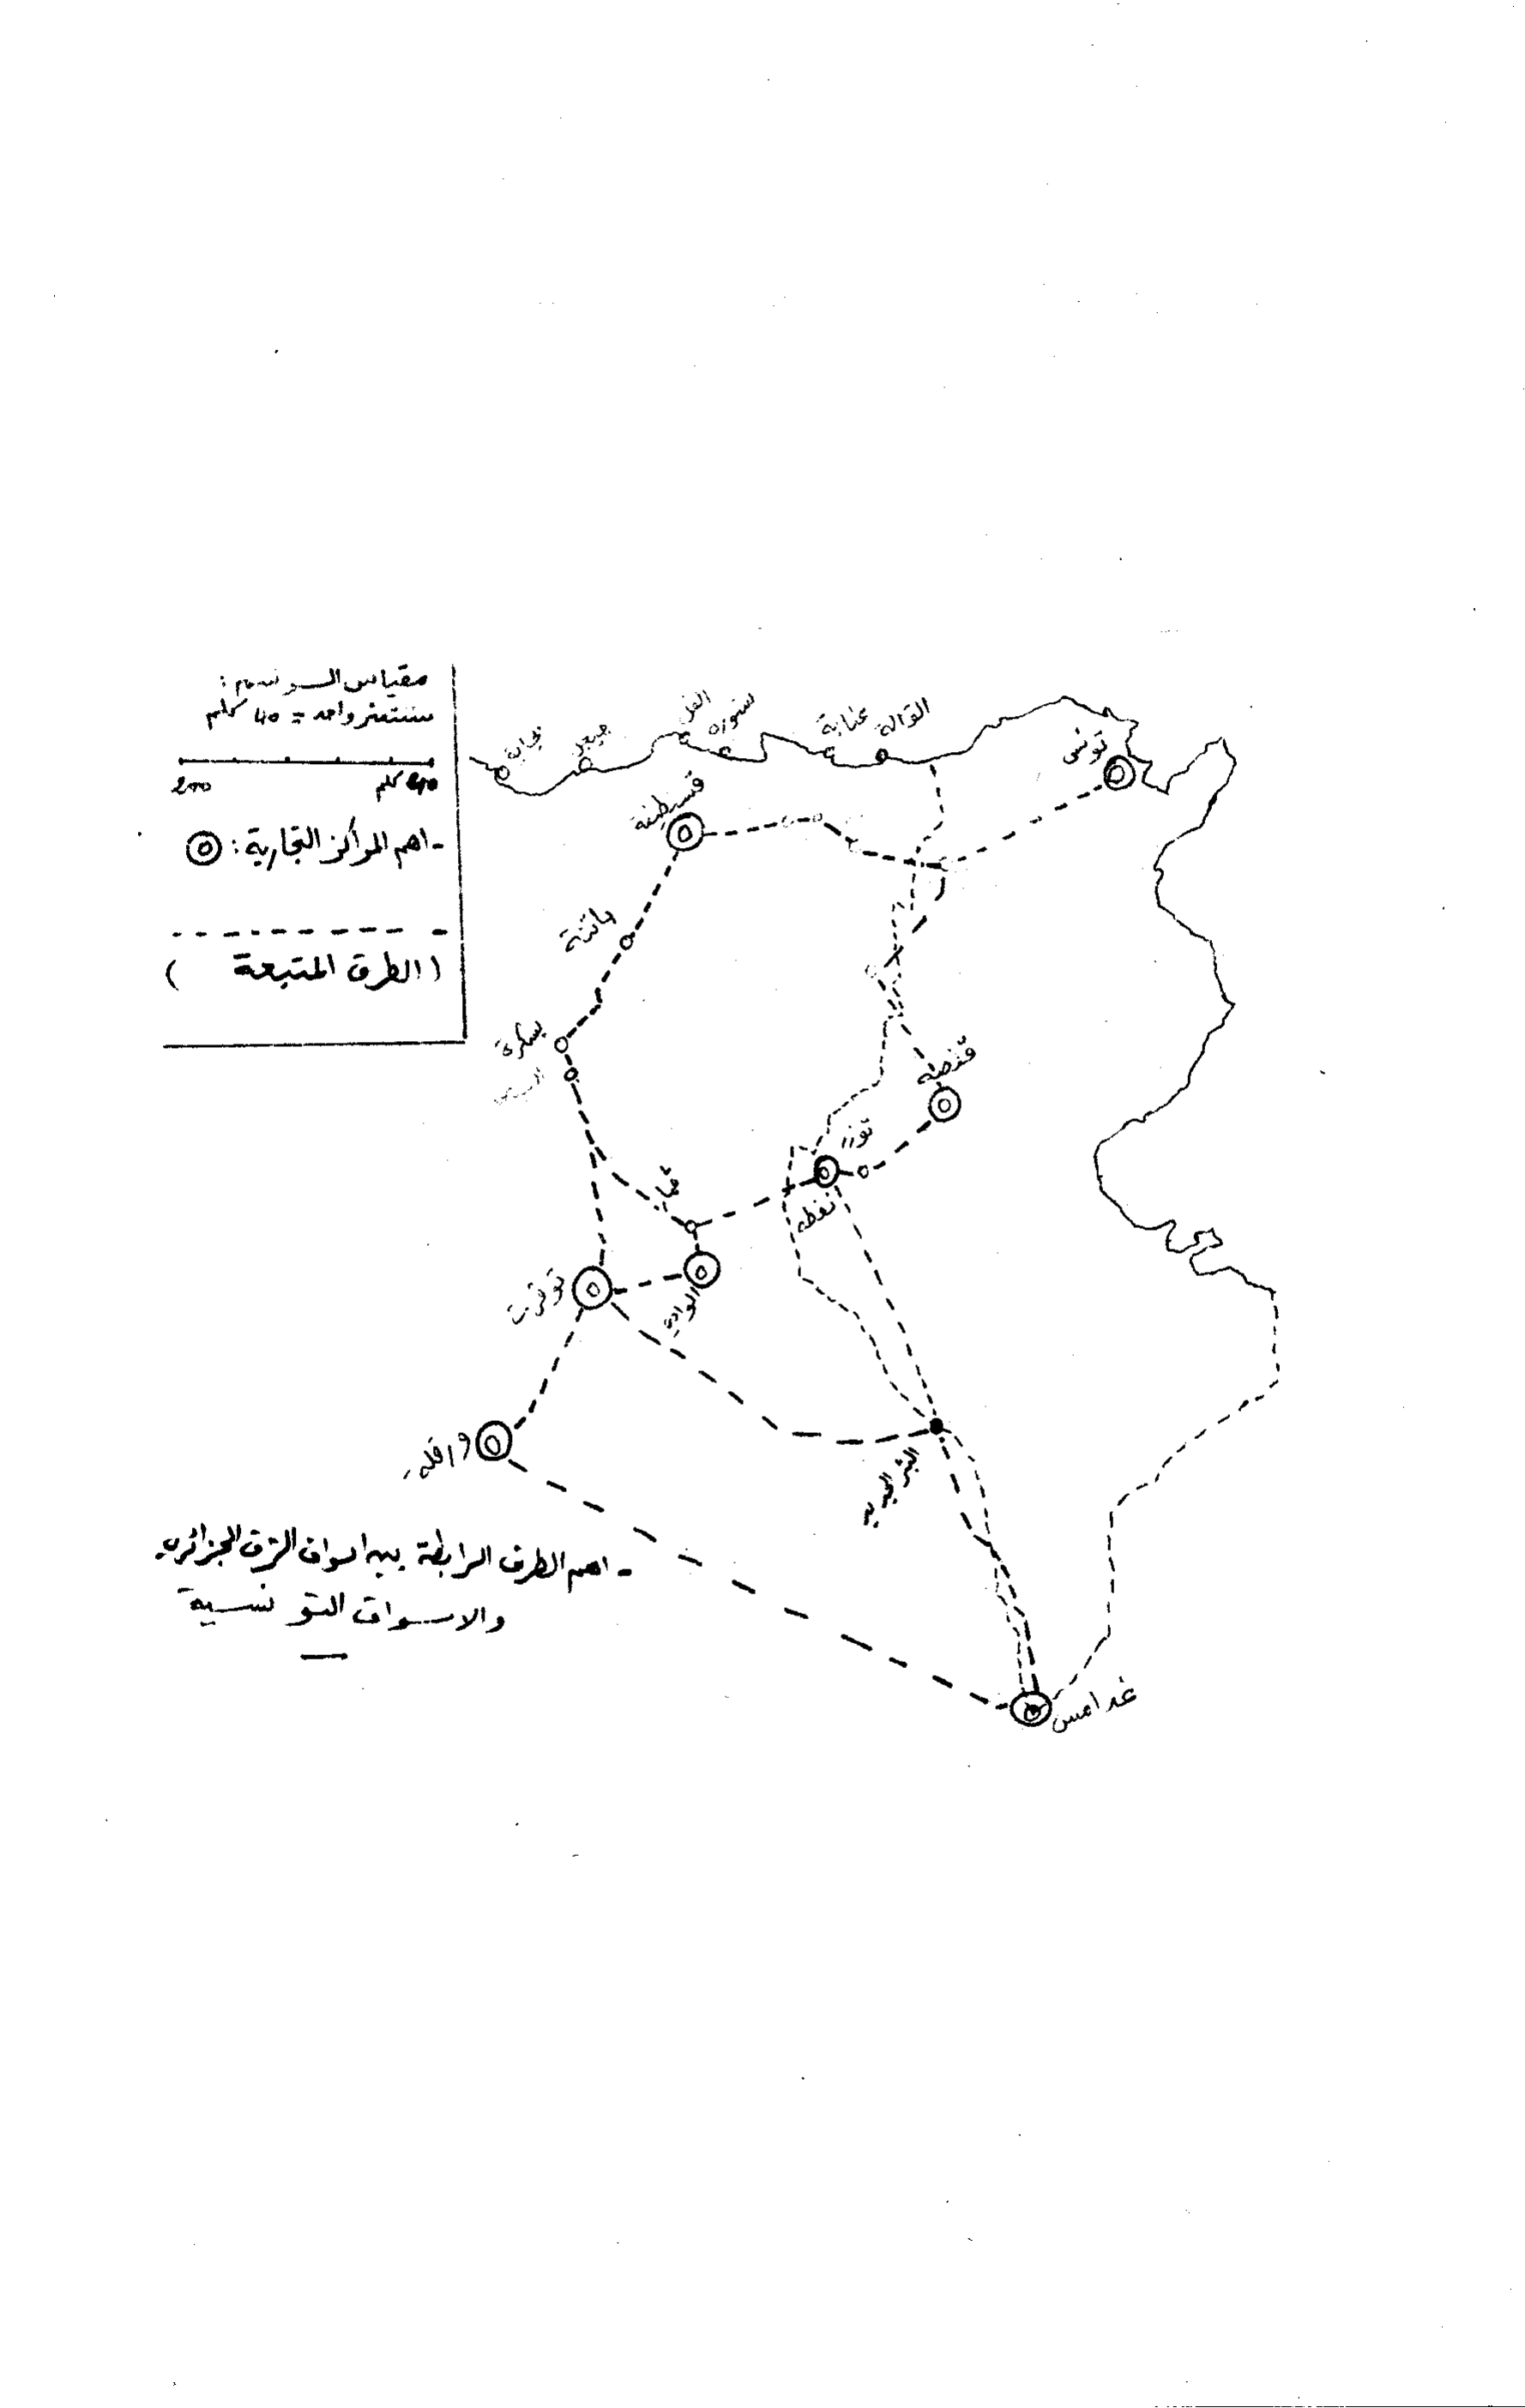 مقياس الرسم :
سنتمتر واحد = 40 كلم
200
40 كلم
- اهم المراكز التجارية :
(الطرق المتبعة )
بجاية
جيجل
القل
سكيكدة
عنابة
القالة
تونس
قسنطينة
باتنة
بسكرة
قفصة
توزر
نفطة
قمار
توقرت
الوادي
ورقلة
البئر الجديد
غدامس
- اهم الطرق الرابطة بين اسواق الشرق الجزائري
والاسواق التونسية